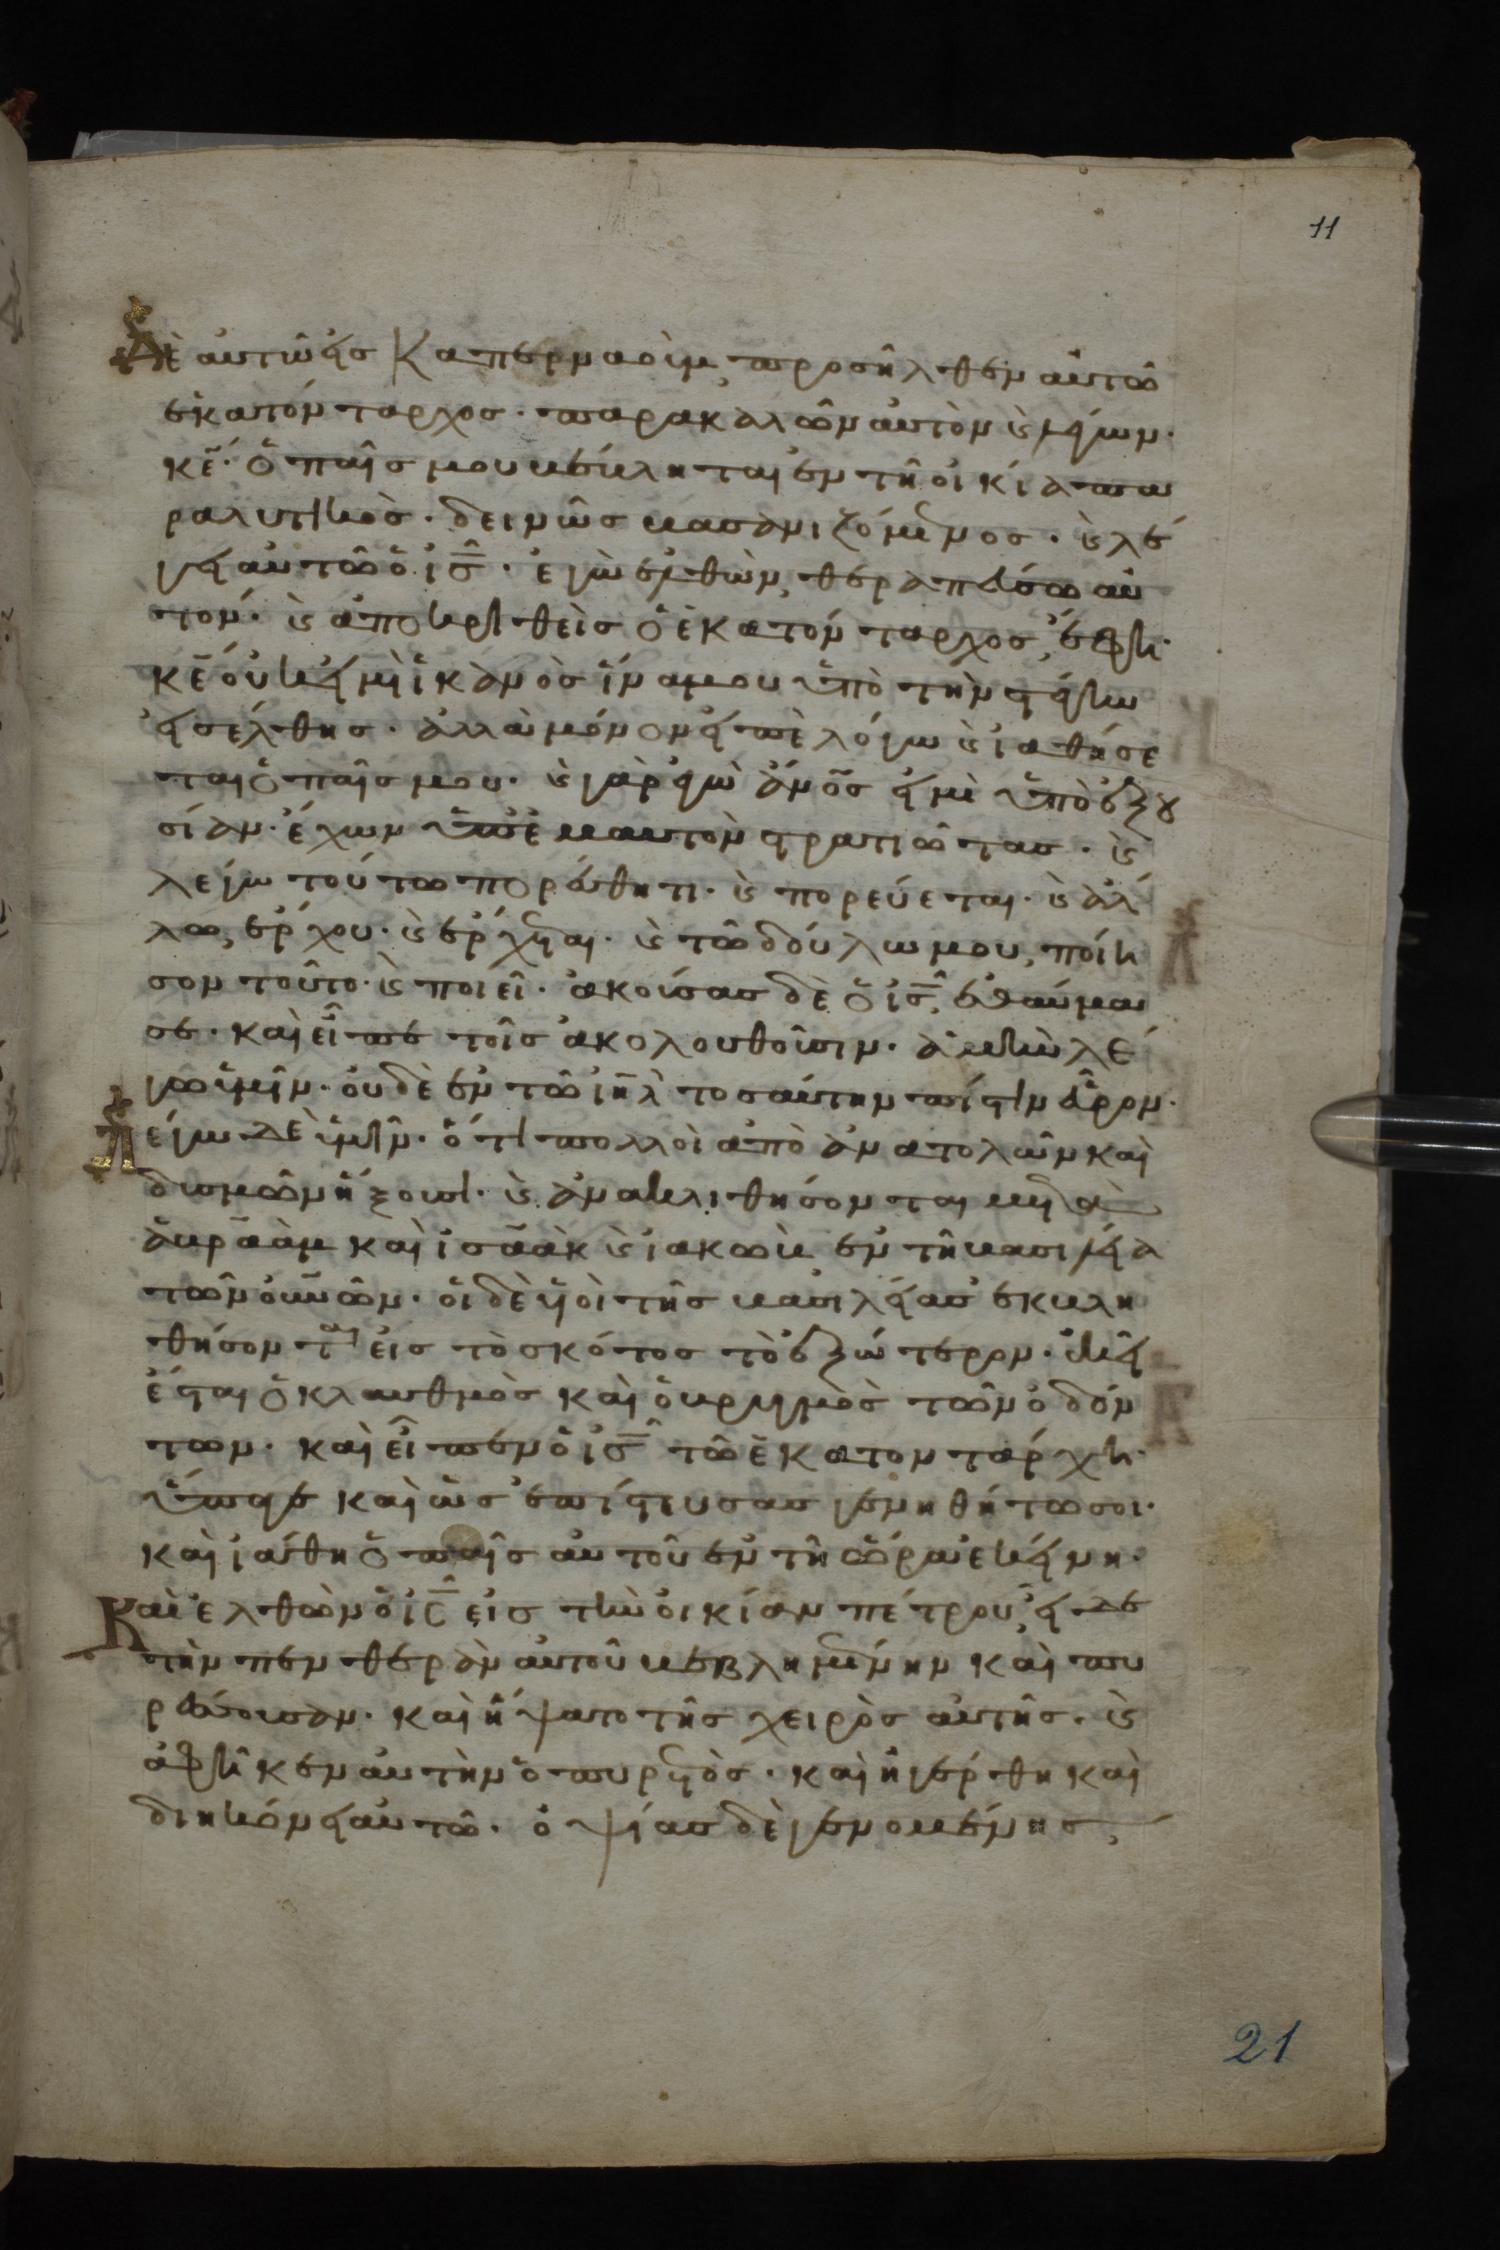 11
Δὲ αὐτῶ εἰς Καπερναοὺμ, προσῆλθεν αὐτῶ
ἑκατόνταρχος· παρακαλῶν αὐτὸν κ̀ λέγων·
κε̄· ὁ παῖς μου βέβληται ἐν τῆ οἰκία πα
ραλυτικὸς· δεινῶς βασανιζόμενος· κ̀ λέ
γει αὐτῶ ὁ ις̄· ἐγὼ ἐλθὼν, θεραπεύσω αὐ
τόν· κ̀ ἀποκριθεὶς ὁ ἑκατόνταρχος, ἔφη·
κε̄ οὐκ εἰμὶ ἱκανὸς ἵνα μου ὑπὸ τὴν στέγην
εἰσέλθης· ἀλλὰ μόνον εἰπὲ λόγω κ̀ ἰαθήσε
ται ὁ παῖς μου· κ̀ γὰρ ἐγὼ ἄνος̄ εἰμὶ ὑπὸ ἐξου
σίαν· ἔχων ὑπ' ἐμαυτὸν στρατιώτας· κ̀
λέγω τούτω πορεύθητι· κ̀ πορεύεται· κ̀ ἄλ
λω, ἔρχου· κ̀ ἔρχεται· κ̀ τῶ δούλω μου, ποίη
σον τοῦτο· κ̀ ποιεῖ· ἀκούσας δὲ ὁ ις̄, ἐθαύμα
σε· καὶ εἶπε τοῖς ἀκολουθοῦσιν· ἀμὴν λέ
γω ὑμῖν· οὐδὲ ἐν τῶ ιη̄λ τοσαύτην πίστιν εὗρον·
Λέγω δὲ ὑμῖν· ὅτι πολλοὶ ἀπὸ ἀνατολῶν καὶ
δυσμῶν ἥξουσι· κ̀ ἀνακλιθήσονται μετὰ
ἀβραὰμ καὶ ἰσαὰκ κ̀ ἰακὼβ ἐν τῆ βασιλεία
τῶν οὐν̄ῶν· οἱ δὲ υἱοὶ τῆς βασιλείας ἐκβλη
θήσονται εἰς τὸ σκότος τὸ ἐξώτερον· ἐκεῖ
ἔσται ὁ κλαυθμὸς καὶ ὁ βρυγμὸς τῶν ὀδόν
των· καὶ εἶπεν ὁ ις̄ τῶ ἑκατοντάρχη·
ὕπαγε καὶ ὡς ἐπίστευσας γενηθήτω σοι·
καὶ ἰάθη ὁ παῖς αὐτοῦ ἐν τῆ ὥρα ἐκείνη·
Καὶ ἐλθὼν ὁ ις̄ εἰς τὴν οἰκίαν πέτρου, εἶδε
τὴν πενθερὰν αὐτοῦ βεβλημένην καὶ πυ
ρέσσουσαν· καὶ ἥψατο τῆς χειρὸς αὐτῆς· κ̀
ἀφῆκεν αὐτὴν ὁ πυρετὸς· καὶ ἠγέρθη καὶ
διηκόνει αὐτῶ· ὀψίας δὲ γενομένης,
21